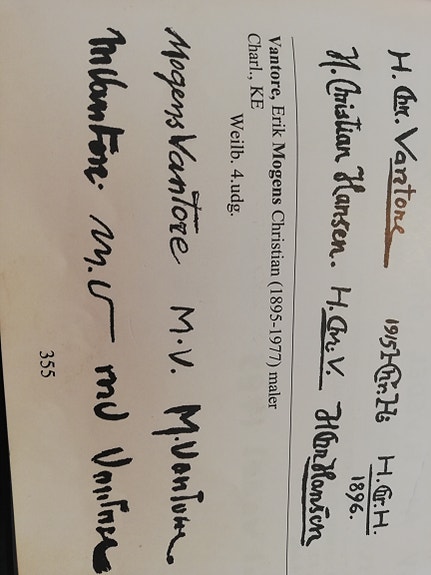 H. Chr. Vantore 1915 H. Chr. H. H. Chr. H. 1896.
H. Christian Hansen. H. Chr. V. H Chr Hansen
Vantore, Erik Mogens Christian (1895-1977) maler
Charl., KE
Weilb. 4.udg.
Mogens Vantore M.V. M. Vantore.
M Vantore. M.V MV Vantore
355